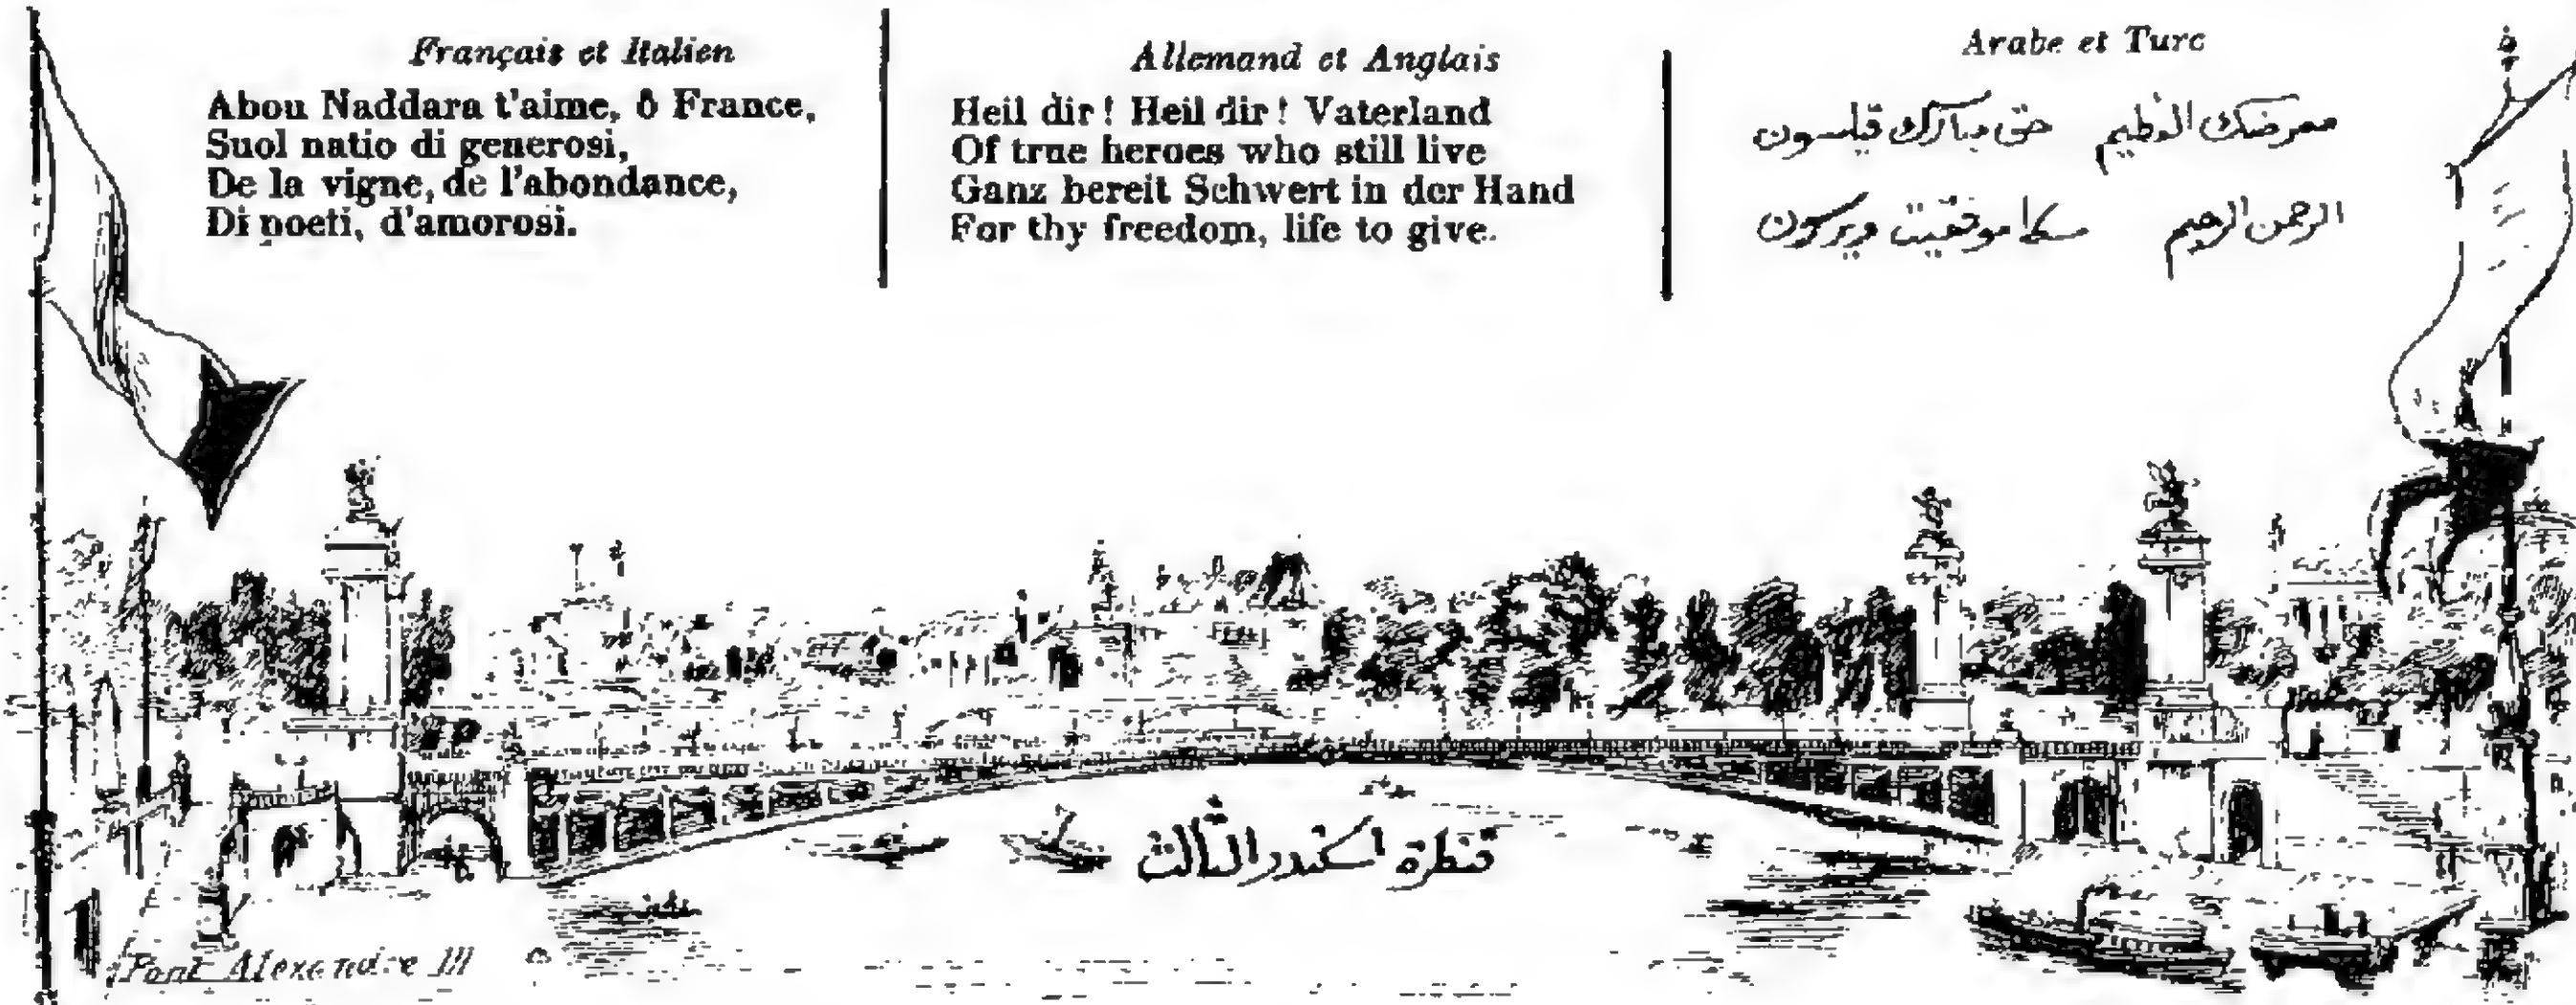 Français et Italien
Abou Naddara t'aime, ô France,
Suol natio di generosi,
De la vigne, de l'abondance,
Di poeti, d'amorosi.
Allemand et Anglais
Heil dir! Heil dir! Vaterland
Of true heroes who still live
Ganz bereit Schwert in der Hand
For thy freedom, life to give.
Arabe et Turc
معرضك العظيم حق مبارك قيلسون
الرحمن الرحيم سكا موفقيت ويرسون
قنطرة اسكندر الثالث
Pont Alexandre III